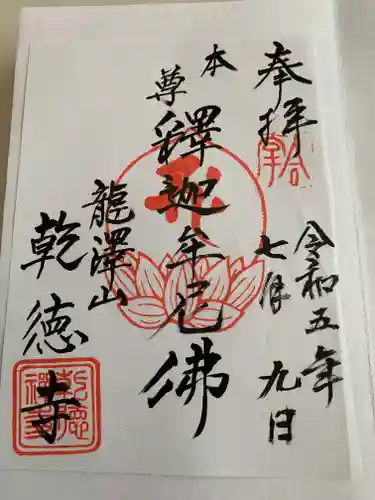 奉拝
令和五年
七月九日
本尊
釋迦牟尼佛
龍澤山
乾徳寺